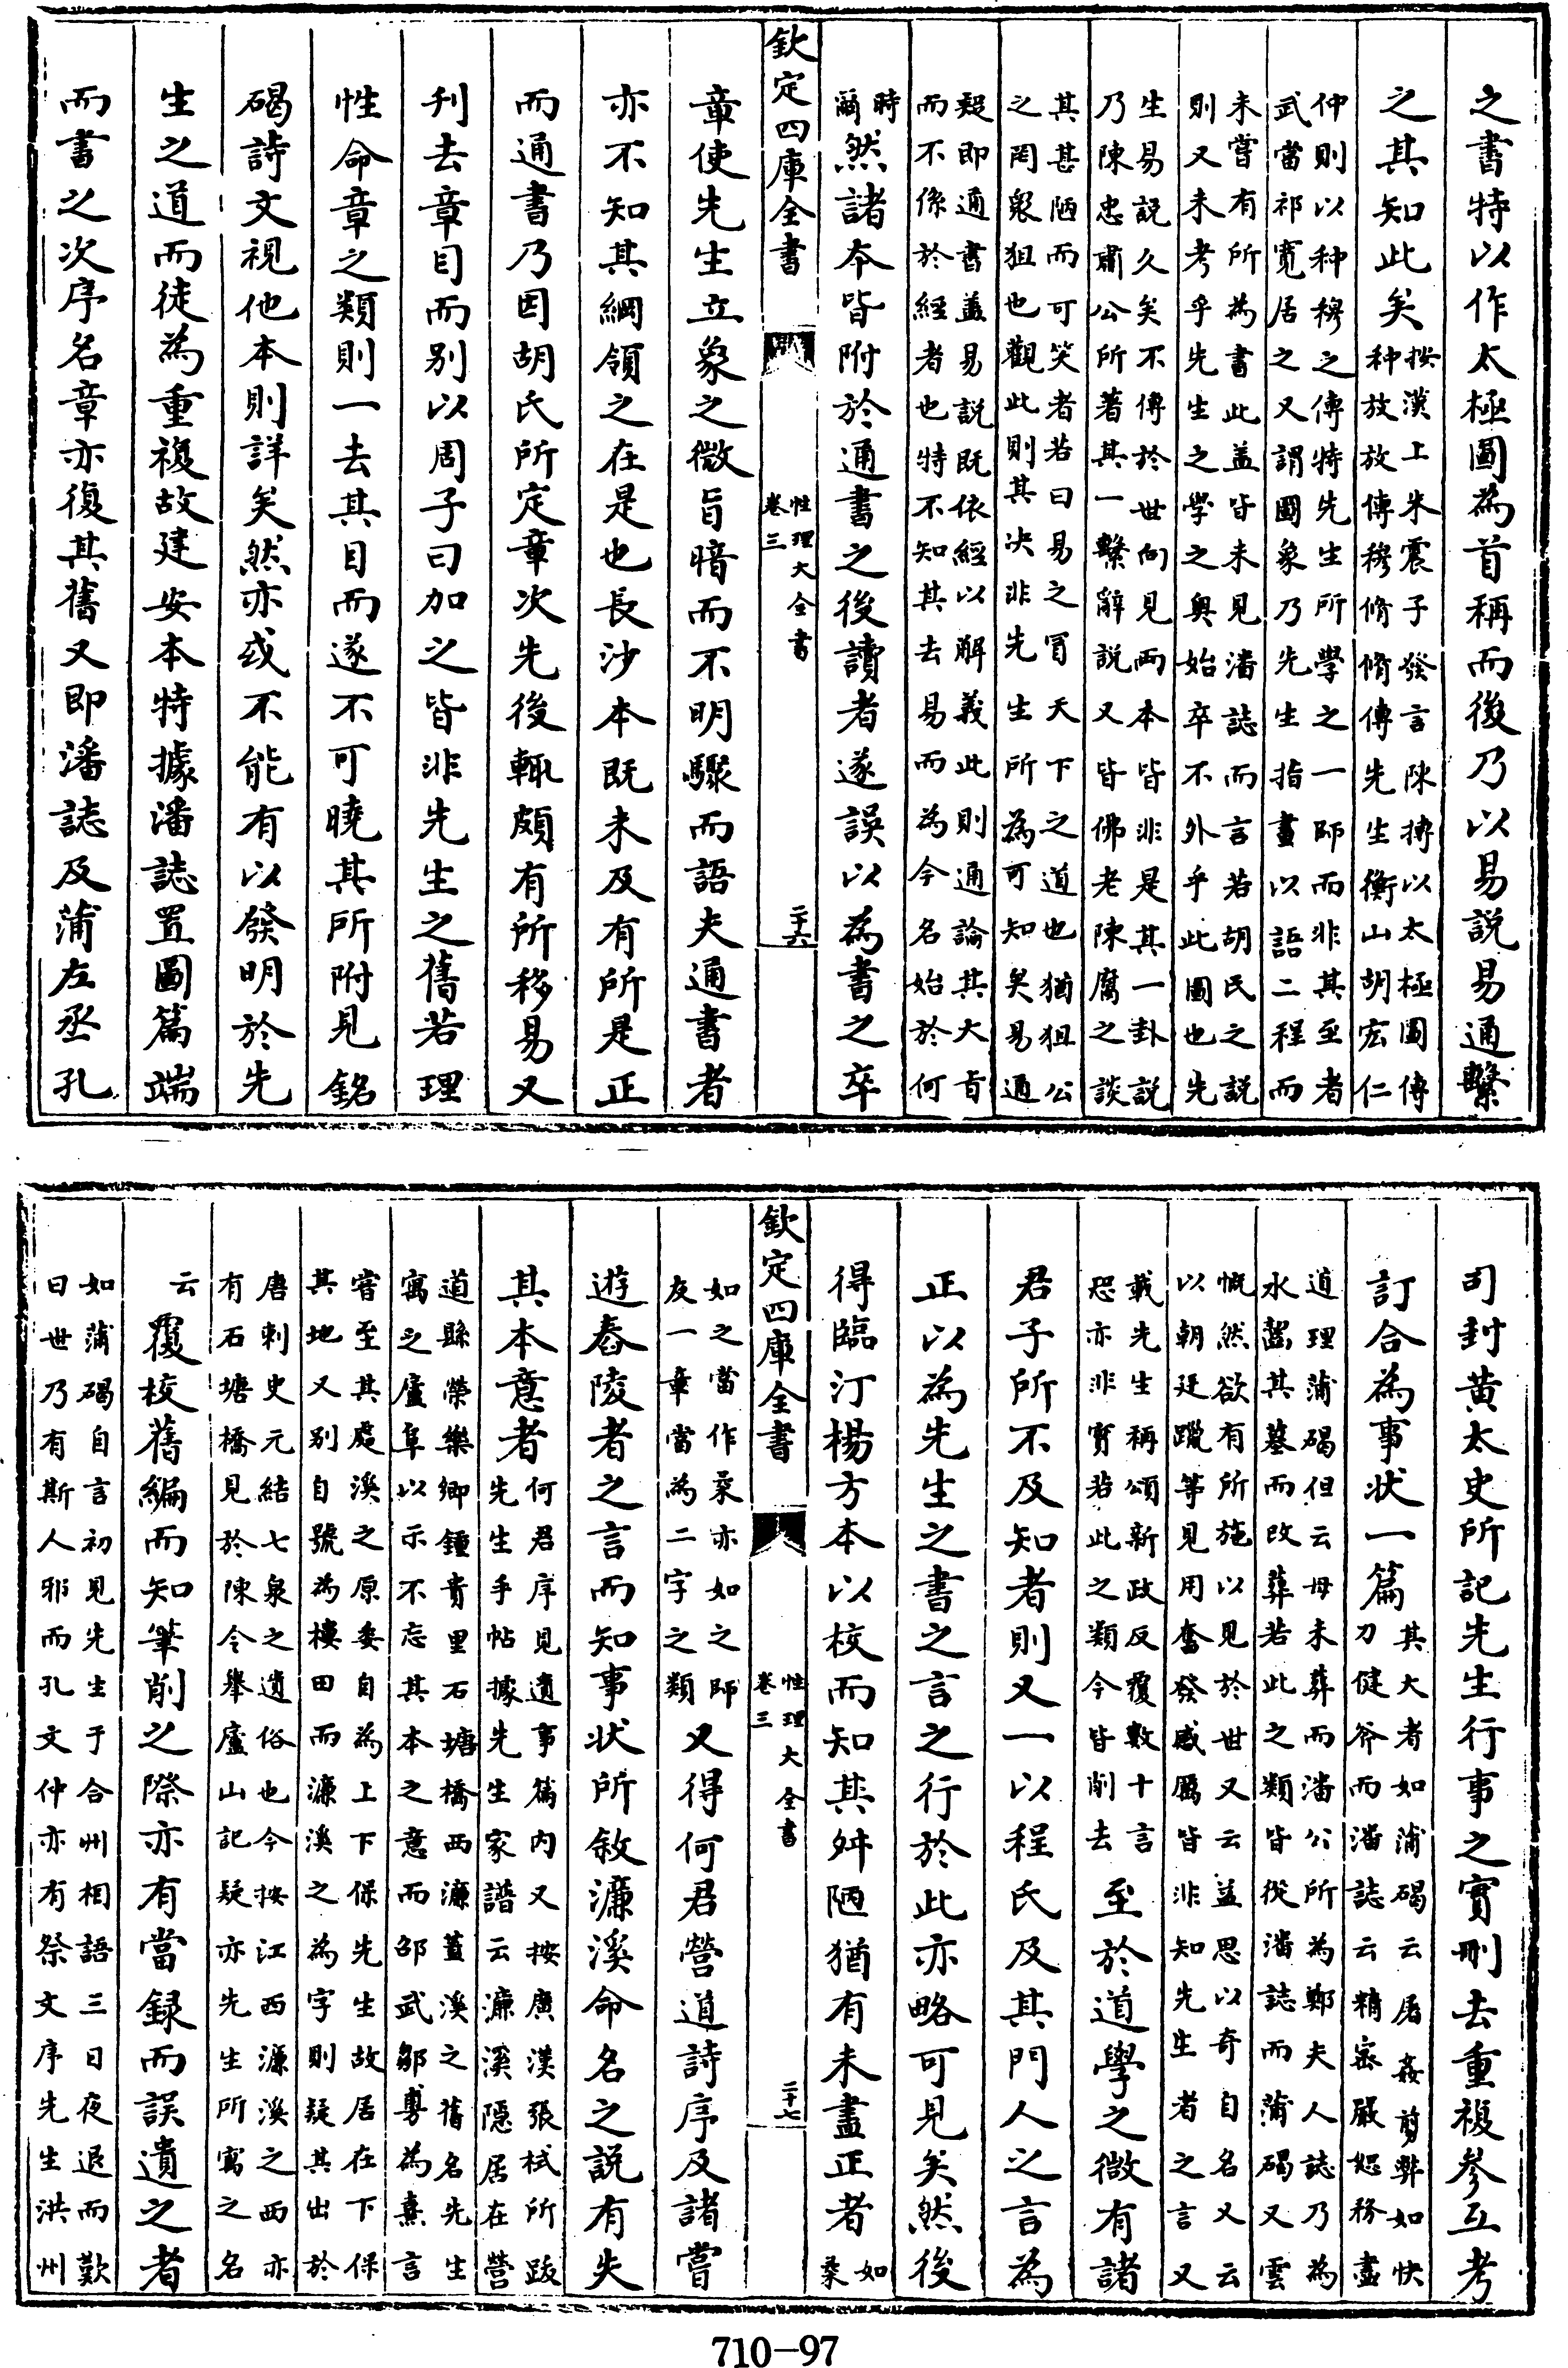 之書特以作太極圖為首稱而後乃以易說易通繫
之其知此矣按漢上朱震子發言陳摶以太極圖傳
种放放傳穆脩脩傳先生衡山胡宏仁
仲則以种穆之傳特先生所學之一師而非其至者
武當祁寬居之又謂圖象乃先生指畫以語二程而
未嘗有所為書此盖皆未見潘誌而言若胡氏之說
則又未考乎先生之學之奥始卒不外乎此圖也先
生易說久矣不傳於世向見兩本皆非是其一卦說
乃陳忠肅公所著其一繫辭說又皆佛老陳腐之談
其甚陋而可笑者若曰易之冐天下之道也猶狙公
之罔衆狙也觀此則其決非先生所為可知矣易通
疑即通書盖易說既依經以解義此則通論其大旨
而不係於經者也特不知其去易而為今名始於何
時爾然諸本皆附於通書之後讀者遂誤以為書之卒
欽定四庫全書
性理大全書
卷三
二十六
章使先生立象之微旨暗而不明驟而語夫通書者
亦不知其綱領之在是也長沙本既未及有所是正
而通書乃因胡氏所定章次先後輒頗有所移易又
刋去章目而别以周子曰加之皆非先生之舊若理
性命章之類則一去其目而遂不可曉其所附見銘
碣詩文視他本則詳矣然亦或不能有以發明於先
生之道而徒為重複故建安本特據潘誌置圖篇端
而書之次序名章亦復其舊又即潘誌及蒲左丞孔
司封黄太史所記先生行事之實刪去重複參互考
訂合為事狀一篇其大者如蒲碣云屠姦剪弊如快
刀健斧而潘誌云精密嚴恕務盡
道理蒲碣但云母未葬而潘公所為鄭夫人誌乃為
水齧其墓而改葬若此之類皆從潘誌而蒲碣又雲
慨然欲有所施以見於世又云益思以奇自名又云
以朝廷躐等見用奮發感厲皆非知先生者之言又
載先生稱頌新政反覆數十言
恐亦非實若此之類今皆削去至於道學之微有諸
君子所不及知者則又一以程氏及其門人之言為
正以為先生之書之言之行於此亦略可見矣然後
得臨汀楊方本以校而知其舛陋猶有未盡正者如
桒
欽定四庫全書
性理大全書
卷三
二十七
如之當作桒亦如之師
友一章當為二字之類又得何君營道詩序及諸嘗
遊舂陵者之言而知事狀所敘濂溪命名之說有失
其本意者何君序見遺事篇内又按廣漢張栻所䟦
先生手帖據先生家譜云濂溪隠居在營
道縣榮樂鄉鍾貴里石塘橋西濂蓋溪之舊名先生
寓之廬阜以示不忘其本之意而邵武鄒旉為熹言
嘗至其處溪之原委自為上下保先生故居在下保
其地又别自號為樓田而濂溪之為字則疑其出於
唐刺史元結七泉之遺俗也今按江西濂溪之西亦
有石塘橋見於陳令舉廬山記疑亦先生所寓之名
云覆校舊編而知筆削之際亦有當録而誤遺之者
如蒲碣自言初見先生于合州相語三日夜退而歎
曰世乃有斯人邪而孔文仲亦有祭文序先生洪州
710-97